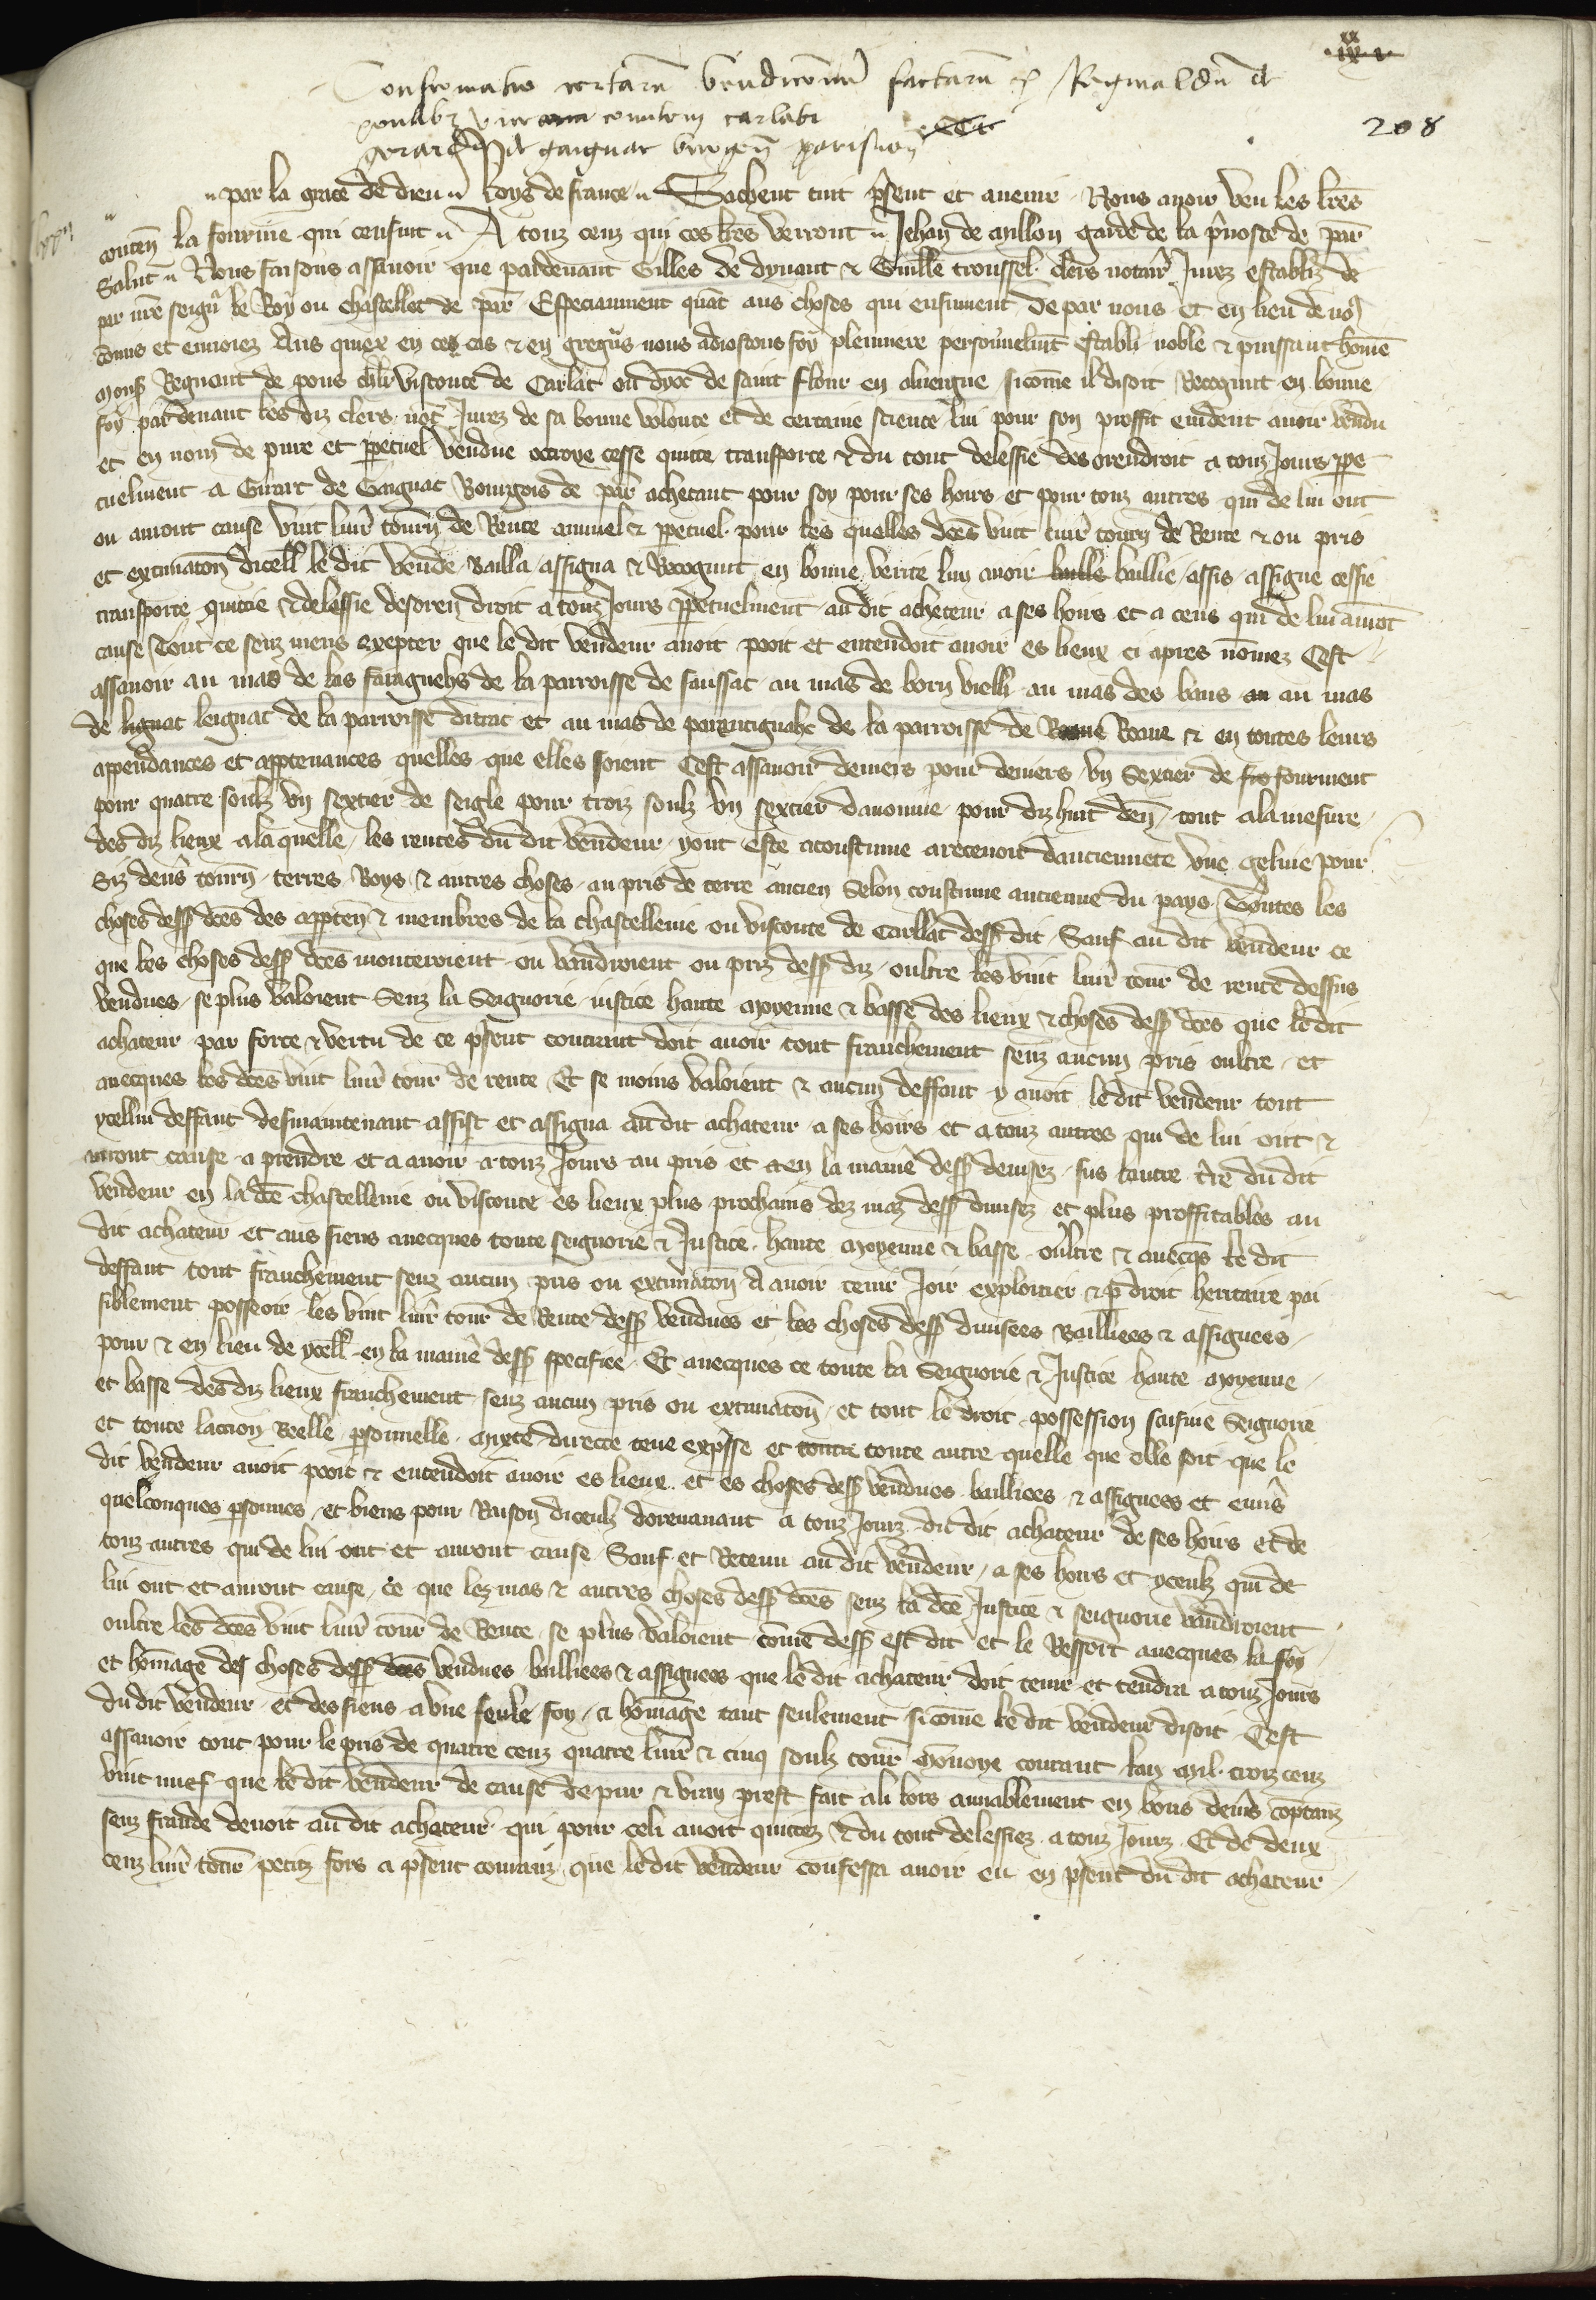 Confirmatio certaru vendicionu factaru p Reginaldu de
pontibz vicecomitem carlati
Gerardo de gaignac burgen parisien
208
par la grace de dieu Roys de france Sachent tuit psent et avenir Nous avoir veu les lres
conten la fourme qui censuit A touz ceuz qui ces lres verront Jehan de Millon garde de la pvoste de par
Salut Nous faisons assavoir que pardevant Gilles de dynant & Guille troussel clers notair Jurez establiz de
par nre seigr le Roy ou chastellet de par Especiaument quat aus choses qui ensuiuent de par nous et en lieu de nos
comis et envoiez Aus quiex en ces cas & en gregns nous adiostons foy pleniere personnelmt establi noble & puissant home
Mons Regnaut de pons chlr visconte de Carlat ou dyoc de saint flour en alvergne sicome il disoit Recognut en bonne
foy pardevant les diz clers not Jurez de sa bonne volonte et de certaine science lui pour son proffit evident avoir vendu
et en nom de pure et ppetuel vendue octroye cesse quitte transporte & du tout delessie des orendroit a touz Jours ppe
tuelment a Girart de Gaignac Bourgois de par achetant pour soy pour ses hoirs et pour touz autres qui de lui ont
ou auront cause vint livr tourn de Rente annuel & ppetuel pour les quelles dces vint livr tourn de Rente & ou pris
et extimaton dicell le dit vende Bailla assigna & Recognut en bonne verite lui avoir baille baillie assis assigne cessie
transporte quittie & delessie desoren droit a touz Jours ppetuelment au dit acheteur a ses hoirs et a ceus qui de lui auront
cause Tout ce senz riens exepter que le dit vendeur avoit povit et entendoit avoir es lieux ci apres nomez Cest
assavoir au mas de las fairaguehs de la parroisse de saussac au mas de born vielli au mas des bans au au mas
de lignac leignac de la parroisse ditrac et au mas de parentignahc de la parroisse de Roane & en toutes leurs
appendances et apptenances quelles que elles soient Cest assavoir deniers pour deniers un Sextier de fro fourment
pour quatre soulz un sextier de seigle pour troiz soulz un sextier davoinne pour diz huit den tout a la mesure
des diz lieux a laquelle les rentes du dit vendeur yont este acoustume a recevoir dancienneté une geline pour
Siz dens tourn terres Boys & autres choses au pris de terre ancien Selon coustume ancienne du pays Toutes les
choses dessus dces des appten & membres de la chastellenie ou visconte de Carllat dess dit Sauf au dit vendeur ce
que les choses dess dces monteroient ou vaudroient ou priz dess diz oultre les vint livr tour de rente dessus
vendues se plus valoient Senz la Seignorie iustice haute moyenne & basse des lieux & choses dess dces que le dit
achateur par force & vertu de ce psent contraut doit avoir tout franchement senz aucun pris oultre et
avecques les dces vint livr tour de rente Et se moins valoient & aucun deffaut y avoit le dit vendeur tout
ycellui deffaut desmaintenant assist et assigna au dit achateur a ses hoirs et a touz autres qui de lui ont &
auront cause a prendre et a avoir a touz Jours au pris et a en la manie dess devisez sus lautre tre du dit
vendeur en la dce chastellenie ou visconte es lieux plus prochains dez mas dess divisez et plus proffitables au
dit achateur et aus siens avecques toute seignorie & Justice haute moyenne & basse oultre & avecqs le dit
deffaut tout franchement senz aucun pris ou extimaton A avoir tenir Joir exploitier & p droit heritaire pai
siblement possoir les vint livr tour de Rente dess vendues et les choses dess divisees Bailliees & assignees
pour & en lieu de ycell en la manie dess specifiee Et avecques ce toute la Seignorie & Justice haute moyenne
et basse des diz lieux franchement senz aucun pris ou extimaton et tout le droit possession saisine Seignorie
et toute laccion Reelle psonnelle mixte directe teue expsse et toute toute autre quelle que elle soit que le
dit vendeur avoit povit & entendoit avoir es lieux et es choses dess vendues bailliees & assignees et envs
quelconques psonnes et biens pour Raison diceulz dorenavant a touz Jourz dit dit achateur de ses hoirs et de
touz autres qui de lui ont et auront cause Sauf et Retenu au dit vendeur a ses hoirs et yceulz qui de
lui ont et auront cause ce que lez mas & autres choses dess dces senz la dce Justice & seignorie vaudroient
oultre les dces vint livr tour de Rente se plus valoient come dess est dit et le Ressort avecques la foy
et homage des choses dess dces vendues bailliees & assignees que le dit achateur doit tenir et tendra a touz Jours
du dit vendeur et des siens a une seule foy & homage tant seulement si come le dit vendeur disoit Cest
assavoir tout pour le pris de quatre cenz quatre livr & cinq soulz tour Monoye courant lan mil troiz cenz
vint nuef que le dit vendeur de cause de pur & vray prest fait a li lors amiablement en bons dens coptanz
senz fraude devoit au dit achateur qui pour celi avoit quittez & du tout delessiez a touz Jourz Et de deux
cenz livr tour petiz fors a psent couranz que le dit vendeur confessa avoir eu en psent du dit achateur